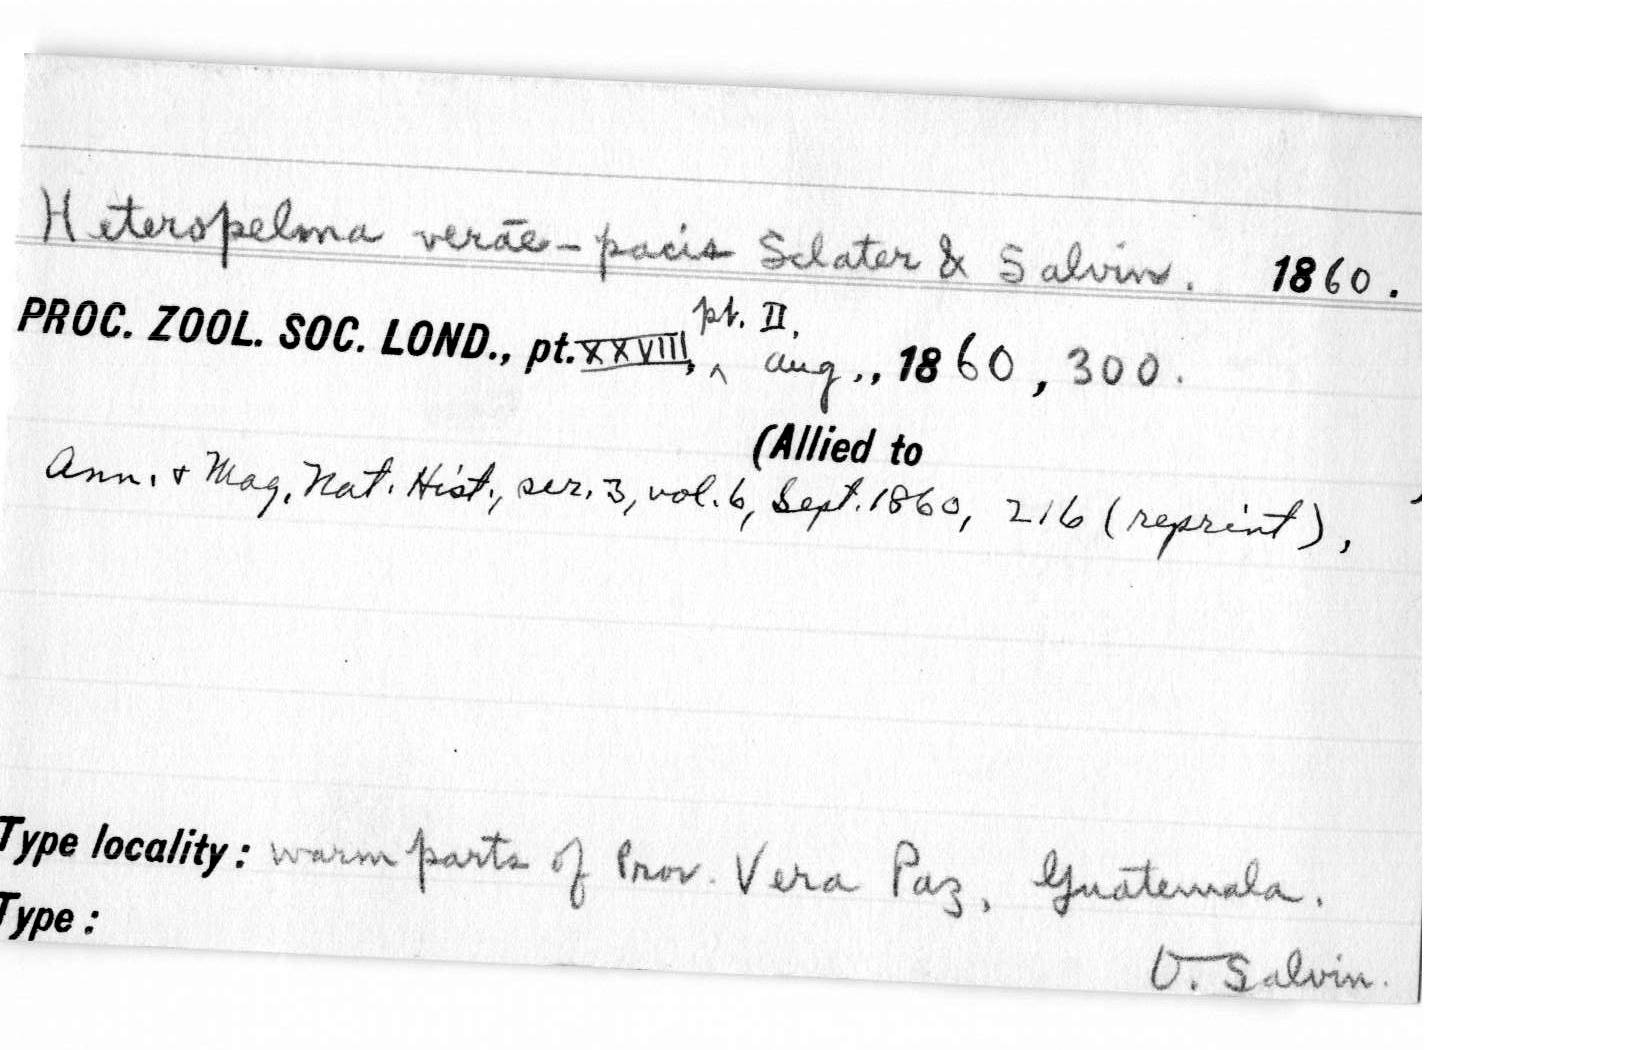 Heteropelma verāe-pacis Sclater & Salvin. 1860.
pt. II,
PROC. ZOOL. SOC. LOND., pt. XXVIII, ^ Aug., 1860, 300.
(Allied to
Ann. & Mag. Nat. Hist., ser. 3, vol. 6, Sept. 1860, 216 (reprint),
Type locality: warm parts of Prov. Vera Paz, Guatemala.
Type:
O. Salvin.